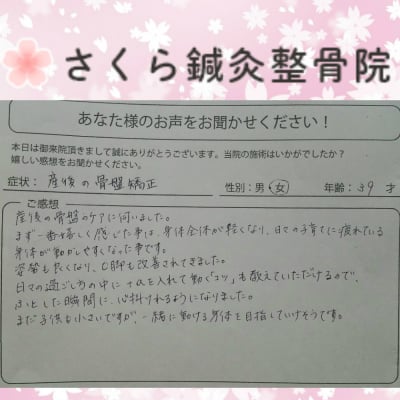 さくら鍼灸整骨院
あなた様のお声をお聞かせください！
本日は御来院頂きまして誠にありがとうございます。当院の施術はいかがでしたか？
嬉しい感想をお聞かせください。
症状： 産後の骨盤矯正 性別：男・女 年齢：39 才
ご感想
産後の骨盤のケアに伺いました。
まず一番嬉しく感じた事は、身体全体が軽くなり、日々の子育てに疲れている
身体が動かしやすくなった事です。
姿勢も良くなり、O脚も改善されてきました。
日々の過ごし方の中に+αを入れて動く「コツ」も教えていただけるので、
ふとした瞬間に、心掛けれるようになりました。
まだ子供も小さいですが、一緒に動ける身体を目指していけそうです。